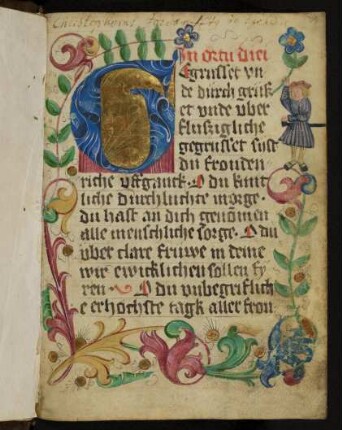 In ortu diei
Gegrusset vn
de durch grus
et vnde vber
flussigliche
gegrusset syst
du frouden
riche vffganck. O du kunt
liche durchluchte morge.
du hast an dich genōmen
alle menschliche sorge. O du
vber clare sunne in deme
wir ewicklichen sollen fy
ren. O du vnbegriflich
e erhochste tagk aller freu